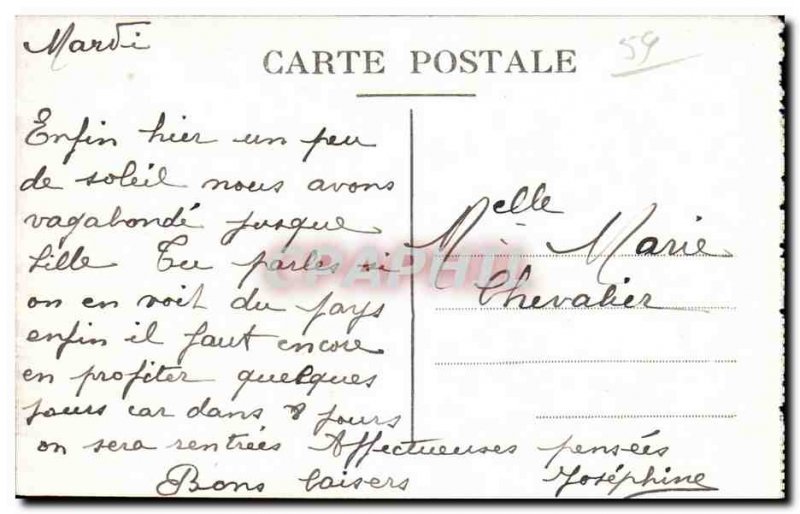 Mardi
CARTE POSTALE
59
Enfin hier un peu
de soleil nous avons
vagabondé jusque
Lille Tu parles si
on en voit du pays
enfin il faut encore
en profiter quelques
jours car dans 8 jours
on sera rentrées Affectueuses pensées
Bons baisers Joséphine
Melle Marie
Chevalier
CPAPHIL